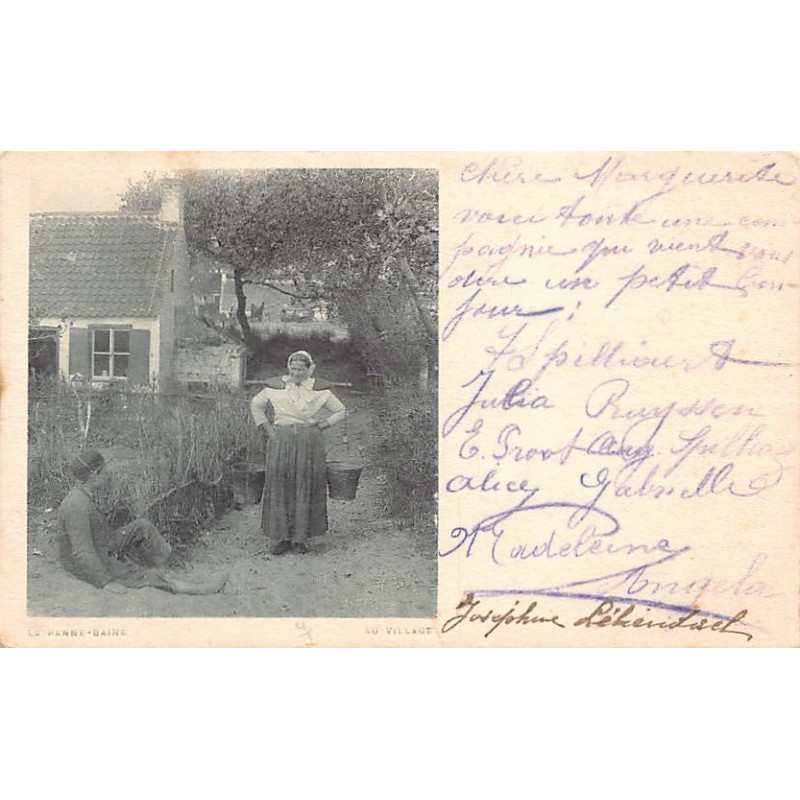 chère Marguerite
voici toute une com-
pagnie qui vient vous
dire un petit bon-
jour :
Julia Ruyssen
E. Proot Aug.
Alice Gabrielle
Madeleine
Angela
Joséphine
LA PANNE-BAINS
AU VILLAGE